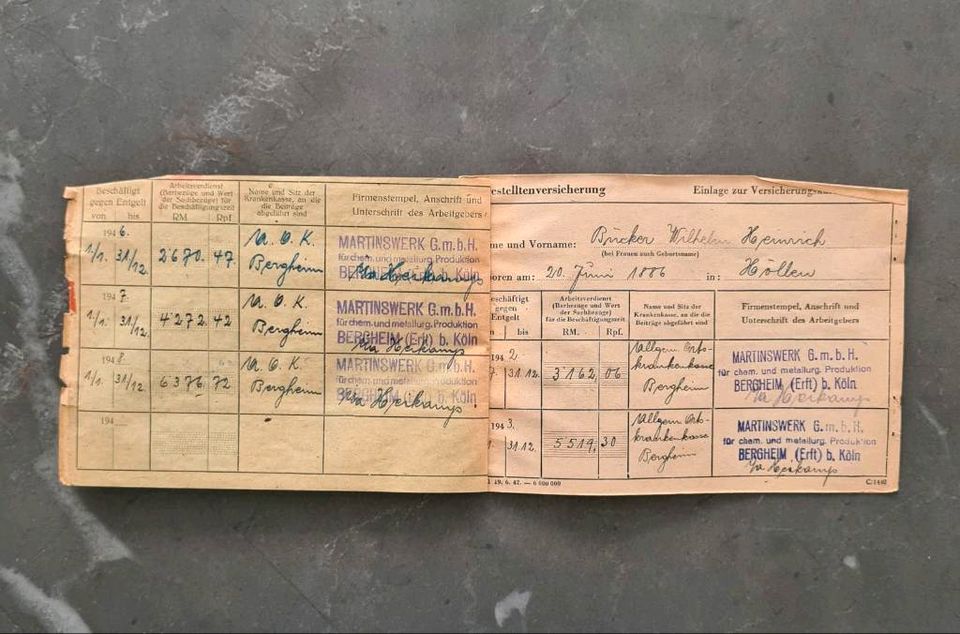 Beschäftigt
gegen Entgelt
von bis
Arbeitsverdienst
(Barbezüge und Wert
der Sachbezüge) für
die Beschäftigungszeit
RM Rpf
Name und Sitz der
Krankenkasse, an die
die Beiträge
abgeführt sind
Firmenstempel, Anschrift und
Unterschrift des Arbeitgebers
1946.
1/1. 31/12. 2670. 47 A. O. K.
Bergheim
MARTINSWERK G.m.b.H.
für chem. und metallurg. Produktion
BERGHEIM (Erft) b. Köln
1947.
1/1. 31/12. 4272. 42 A. O. K.
Bergheim
MARTINSWERK G.m.b.H.
für chem. und metallurg. Produktion
BERGHEIM (Erft) b. Köln
1948.
1/1. 31/12. 6376. 72 A. O. K.
Bergheim
MARTINSWERK G.m.b.H.
für chem. und metallurg. Produktion
BERGHEIM (Erft) b. Köln
194
estelltenversicherung Einlage zur
me und Vorname: Bücker Wilhelm Heinrich
(bei Frauen auch Geburtsname)
oren am: 20. Juni 1886 in: Höllen
eschäftigt
gegen
Entgelt
bis
Arbeitsverdienst
(Barbezüge und Wert
der Sachbezüge)
für die Beschäftigungszeit
RM. Rpf.
Name und Sitz der
Krankenkasse, an die die
Beiträge abgeführt sind
Firmenstempel, Anschrift und
Unterschrift des Arbeitgebers
1942.
31.12. 3162,06
Allgem. Orts-
krankenkasse
Bergheim
MARTINSWERK G.m.b.H.
für chem. und metallurg. Produktion
BERGHEIM (Erft) b. Köln
1943.
31.12. 5519,30
Allgem. Orts-
krankenkasse
Bergheim
MARTINSWERK G.m.b.H.
für chem. und metallurg. Produktion
BERGHEIM (Erft) b. Köln
19. 6. 42. — 6 000 000